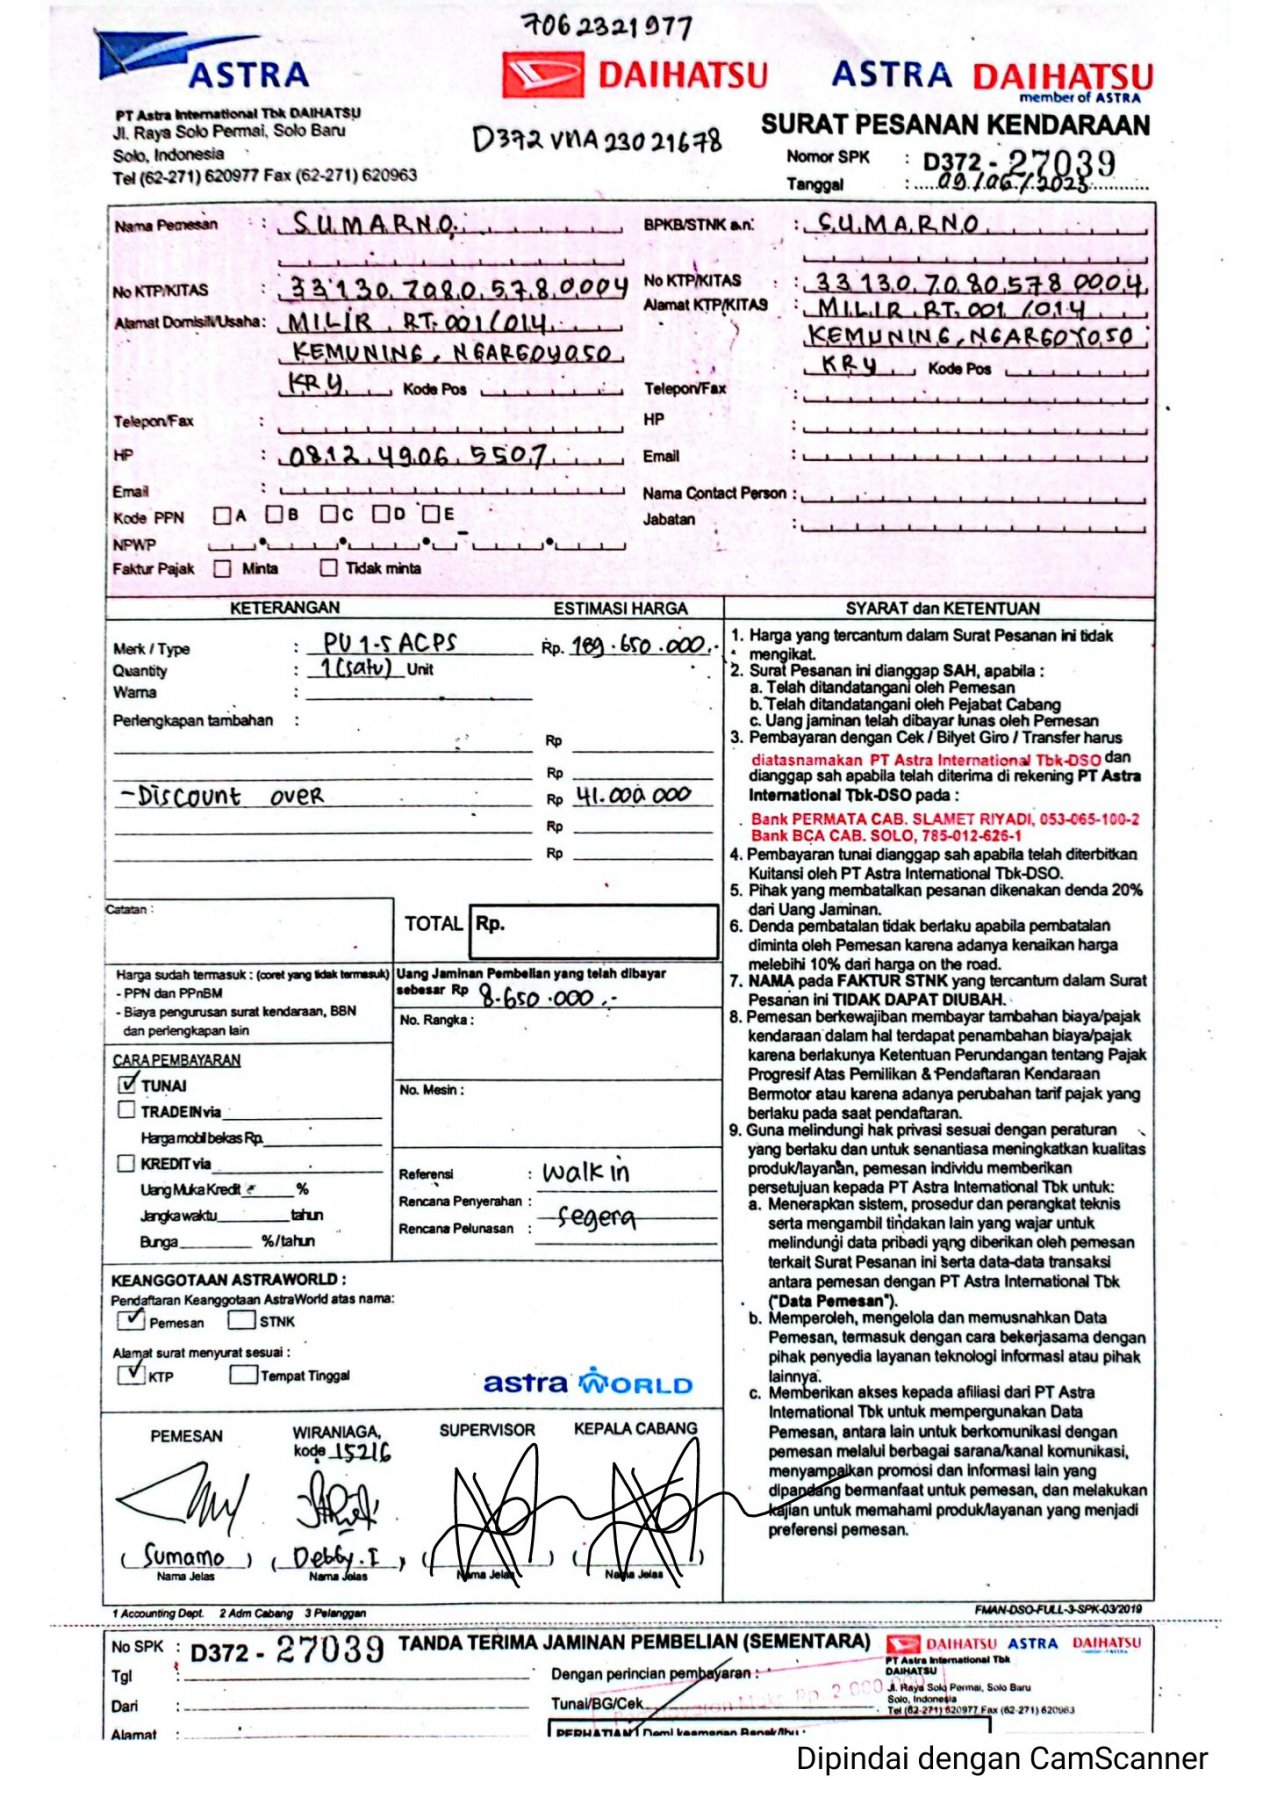 7062321977
ASTRA
DAIHATSU
ASTRA DAIHATSU
member of ASTRA
PT Astra International Tbk DAIHATSU
Jl. Raya Solo Permai, Solo Baru
Solo, Indonesia
Tel (62-271) 620977 Fax (62-271) 620963
D372 VMA 23021678
SURAT PESANAN KENDARAAN
Nomor SPK : D372 - 27039
Tanggal : 09/06/2023
Nama Pemesan : SUMARNO
No KTP/KITAS : 3313070805780004
Alamat Domisili/Usaha: MILIR RT. 001/014
KEMUNING, NGARGOYOSO
KRY Kode Pos
Telepon/Fax :
HP : 0812 4906 5507
Email :
Kode PPN A B C D E
NPWP
Faktur Pajak Minta Tidak minta
BPKB/STNK a.n. : SUMARNO
No KTP/KITAS : 3313070805780004
Alamat KTP/KITAS : MILIR RT. 001/014
KEMUNING, NGARGOYOSO
KRY Kode Pos
Telepon/Fax :
HP :
Email :
Nama Contact Person :
Jabatan :
KETERANGAN ESTIMASI HARGA
Merk / Type : PU 1-5 ACPS Rp. 189.650.000,-
Quantity : 1 (satu) Unit
Warna :
Perlengkapan tambahan :
Rp
Rp
- Discount over Rp 41.000 000
Rp
Rp
Catatan :
TOTAL Rp.
Harga sudah termasuk : (coret yang tidak termasuk)
- PPN dan PPnBM
- Biaya pengurusan surat kendaraan, BBN
dan perlengkapan lain
Uang Jaminan Pembelian yang telah dibayar
sebesar Rp 8.650.000,-
No. Rangka :
No. Mesin :
CARA PEMBAYARAN
TUNAI
TRADE IN via
Harga mobil bekas Rp.
KREDIT via
Uang Muka Kredit %
Jangka waktu tahun
Bunga %/tahun
Referensi : Walk in
Rencana Penyerahan :
Segera
Rencana Pelunasan :
KEANGGOTAAN ASTRAWORLD :
Pendaftaran Keanggotaan AstraWorld atas nama:
Pemesan STNK
Alamat surat menyurat sesuai :
KTP Tempat Tinggal
astra WORLD
SYARAT dan KETENTUAN
1. Harga yang tercantum dalam Surat Pesanan ini tidak
mengikat.
2. Surat Pesanan ini dianggap SAH, apabila :
a. Telah ditandatangani oleh Pemesan
b. Telah ditandatangani oleh Pejabat Cabang
c. Uang jaminan telah dibayar lunas oleh Pemesan
3. Pembayaran dengan Cek / Bilyet Giro / Transfer harus
diatasnamakan PT Astra International Tbk-DSO dan
dianggap sah apabila telah diterima di rekening PT Astra
International Tbk-DSO pada :
Bank PERMATA CAB. SLAMET RIYADI, 053-065-100-2
Bank BCA CAB. SOLO, 785-012-626-1
4. Pembayaran tunai dianggap sah apabila telah diterbitkan
Kuitansi oleh PT Astra International Tbk-DSO.
5. Pihak yang membatalkan pesanan dikenakan denda 20%
dari Uang Jaminan.
6. Denda pembatalan tidak berlaku apabila pembatalan
diminta oleh Pemesan karena adanya kenaikan harga
melebihi 10% dari harga on the road.
7. NAMA pada FAKTUR STNK yang tercantum dalam Surat
Pesanan ini TIDAK DAPAT DIUBAH.
8. Pemesan berkewajiban membayar tambahan biaya/pajak
kendaraan dalam hal terdapat penambahan biaya/pajak
karena berlakunya Ketentuan Perundangan tentang Pajak
Progresif Atas Pemilikan & Pendaftaran Kendaraan
Bermotor atau karena adanya perubahan tarif pajak yang
berlaku pada saat pendaftaran.
9. Guna melindungi hak privasi sesuai dengan peraturan
yang berlaku dan untuk senantiasa meningkatkan kualitas
produk/layanan, pemesan individu memberikan
persetujuan kepada PT Astra International Tbk untuk:
a. Menerapkan sistem, prosedur dan perangkat teknis
serta mengambil tindakan lain yang wajar untuk
melindungi data pribadi yang diberikan oleh pemesan
terkait Surat Pesanan ini serta data-data transaksi
antara pemesan dengan PT Astra International Tbk
("Data Pemesan").
b. Memperoleh, mengelola dan memusnahkan Data
Pemesan, termasuk dengan cara bekerjasama dengan
pihak penyedia layanan teknologi informasi atau pihak
lainnya.
c. Memberikan akses kepada afiliasi dari PT Astra
International Tbk untuk mempergunakan Data
Pemesan, antara lain untuk berkomunikasi dengan
pemesan melalui berbagai sarana/kanal komunikasi,
menyampaikan promosi dan informasi lain yang
dipandang bermanfaat untuk pemesan, dan melakukan
kajian untuk memahami produk/layanan yang menjadi
preferensi pemesan.
PEMESAN WIRANIAGA, SUPERVISOR KEPALA CABANG
kode 15216
( Sumarno ) ( Debby. I ) ( ) ( )
Nama Jelas Nama Jelas Nama Jelas Nama Jelas
1 Accounting Dept. 2 Adm Cabang 3 Pelanggan
FMAN-DSO-FULL-3-SPK-03/2019
No SPK : D372 - 27039 TANDA TERIMA JAMINAN PEMBELIAN (SEMENTARA)
DAIHATSU ASTRA DAIHATSU
PT Astra International Tbk
DAIHATSU
Jl. Raya Solo Permai, Solo Baru
Solo, Indonesia
Tel (62-271) 620977 Fax (62-271) 620963
Tgl :
Dari :
Alamat :
Dengan perincian pembayaran :
Tunai/BG/Cek
Rp. 2 000 000
PERHATIAN! Demi keamanan Bapak/Ibu :
Dipindai dengan CamScanner